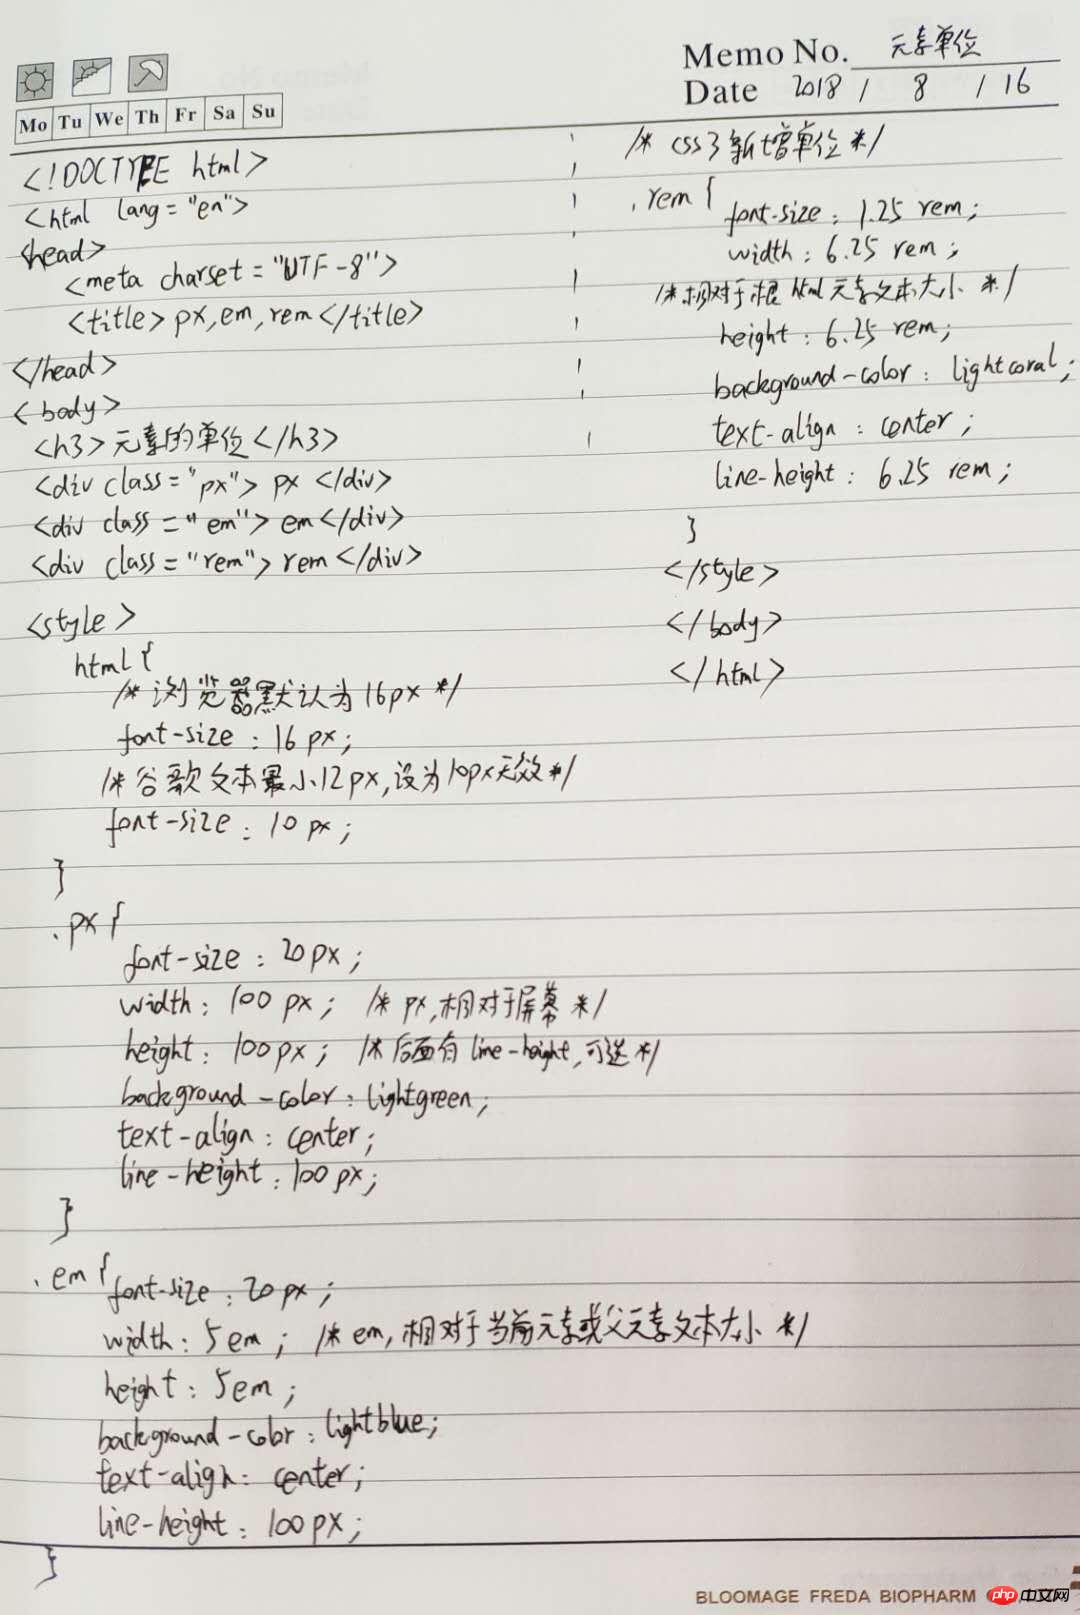 Memo No. 元素单位
Date 2018 / 8 / 16
Mo Tu We Th Fr Sa Su
<!DOCTYPE html>
<html lang="en">
<head>
<meta charset="UTF-8">
<title>px,em,rem</title>
</head>
<body>
<h3>元素的单位</h3>
<div class="px">px</div>
<div class="em">em</div>
<div class="rem">rem</div>
<style>
html{
/* 浏览器默认为16px */
font-size:16px;
/* 谷歌文本最小12px,设为10px无效 */
font-size:10px;
}
.px{
font-size:20px;
width:100px; /* px,相对于屏幕 */
height:100px; /* 后面有line-height,可选 */
background-color:lightgreen;
text-align:center;
line-height:100px;
}
.em{
font-size:20px;
width:5em; /* em,相对于当前元素或父元素文本大小 */
height:5em;
background-color:lightblue;
text-align:center;
line-height:100px;
}
/* css3新增单位 */
.rem{
font-size:1.25rem;
width:6.25rem;
/* 相对于根html元素文本大小 */
height:6.25rem;
background-color:lightcoral;
text-align:center;
line-height:6.25rem;
}
</style>
</body>
</html>
BLOOMAGE FREDA BIOPHARM
php中文网